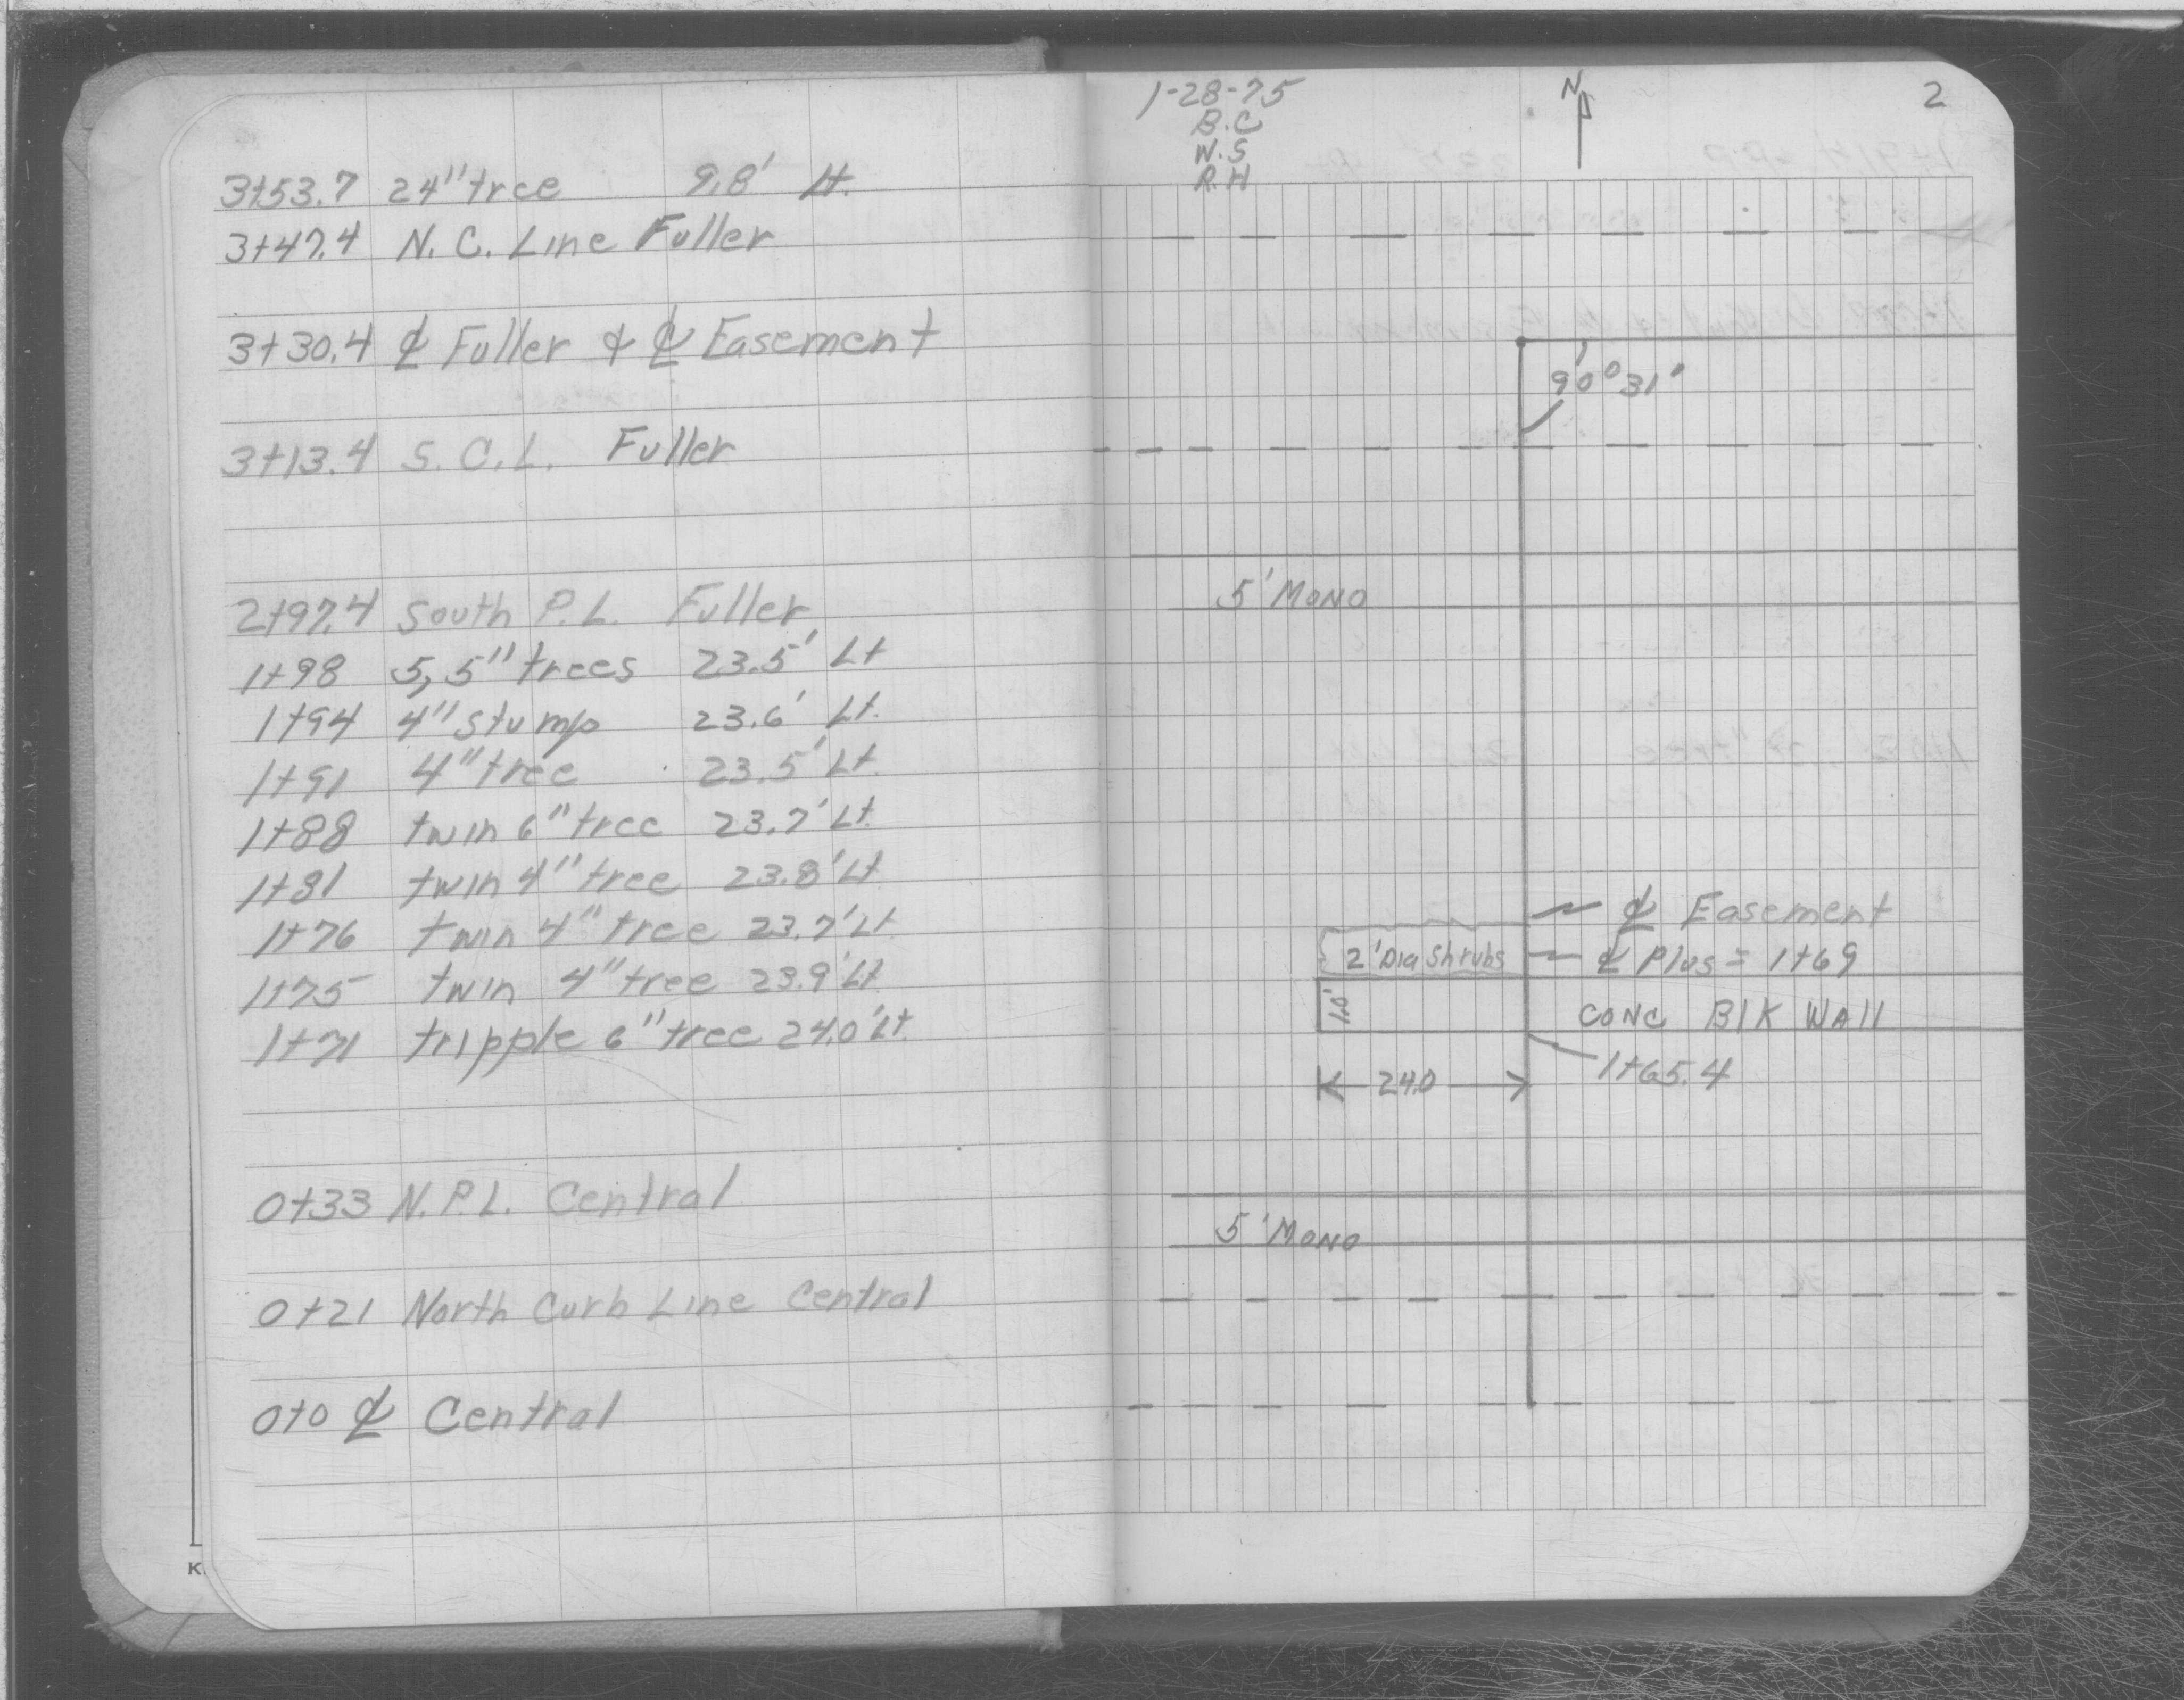 3+53.7 24" tree 9.8' Lt.
3+47.4 N. C. Line Fuller
3+30.4 ℄ Fuller & ℄ Easement
3+13.4 S. C. L. Fuller
2+97.4 South P. L. Fuller
1+98 5, 5" trees 23.5' Lt
1+94 4" stump 23.6' Lt.
1+91 4" tree 23.5' Lt.
1+88 twin 6" tree 23.7' Lt.
1+81 twin 4" tree 23.8' Lt
1+76 twin 4" tree 23.7' Lt
1+75 twin 4" tree 23.9' Lt
1+71 tripple 6" tree 24.0' Lt.
0+33 N. P. L. Central
0+21 North Curb Line Central
0+0 ℄ Central
K
1-28-75
B.C
W.S
R.H
N
2
90° 31'
5' MONO
℄ Easement
2' Dia Shrubs
℄ Plus = 1+69
1.0'
CONC BlK WAll
1+65.4
24.0
5' MONO